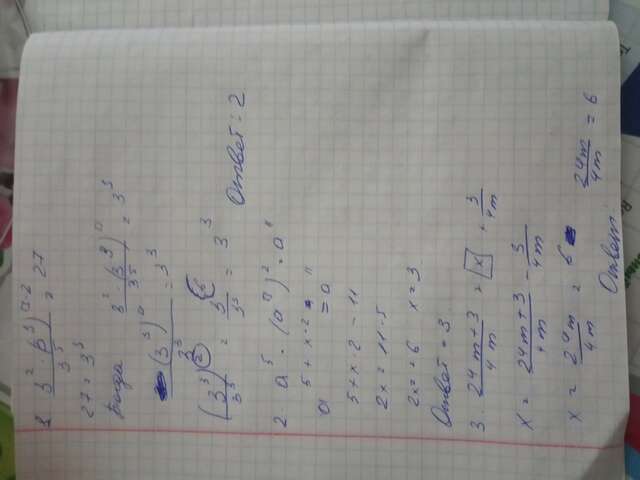 3² · (3³)
3⁵ = 27
27 = 3³
тогда 3² · (3³) / 3⁵ = 3³
(3³) = 3³
(3³)² / 3⁵ = 3⁶ / 3³ = 3³
Ответ: 2
2. a⁵ · (aˣ)² = a¹¹
a 5 + x · 2 = a 11
5 + x · 2 = 11
2x = 11 - 5
2x = 6 x = 3
Ответ = 3
3. 24m + 3 / 4m = x + 3 / 4m
x = 24m + 3 / 4m - 3 / 4m
x = 24m / 4m = 6
24m / 4m = 6
Ответ: